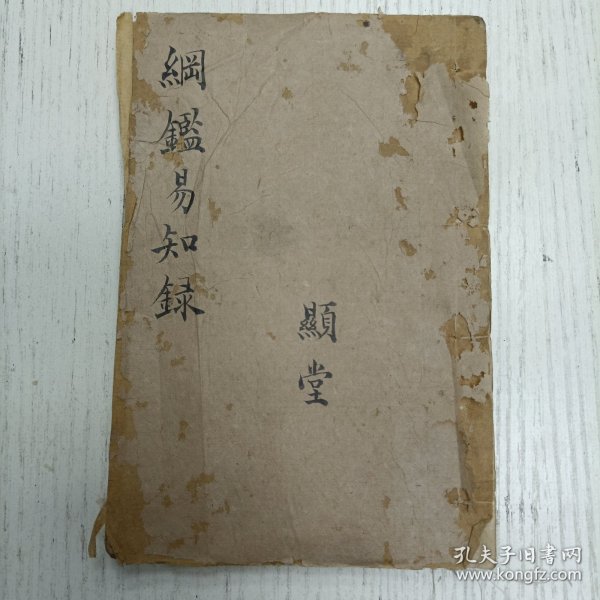 綱鑑易知録
顯堂
孔夫子旧書网
www.kongfz.com